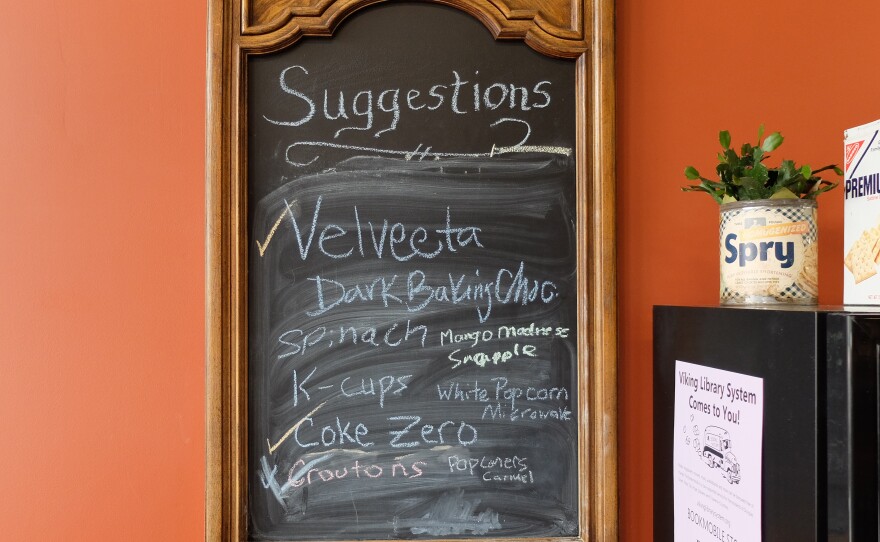 Suggestions
Velveeta
Dark Baking Choc.
Spinach
Mango Madness
Snapple
K-cups
White Popcorn
Microwave
Coke Zero
Croutons
Popcorners
Carmel
HOMOGENIZED
Spry
PREMIU
Viking Library System
Comes to You!
BOOKMOBILE STO